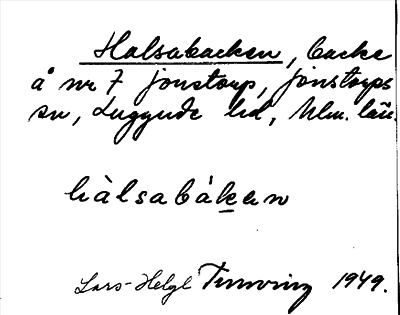 Halsabacken, backe
å nr 7 Jonstorp, Jonstorps
sn, Luggude hd, Mlm. län.
hàlsabáken
Lars-Helge
1949.